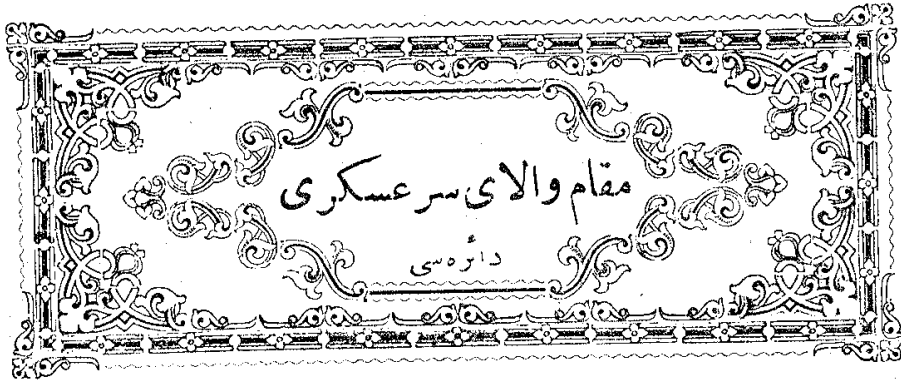 مقام والای سر عسکری
دائره سی